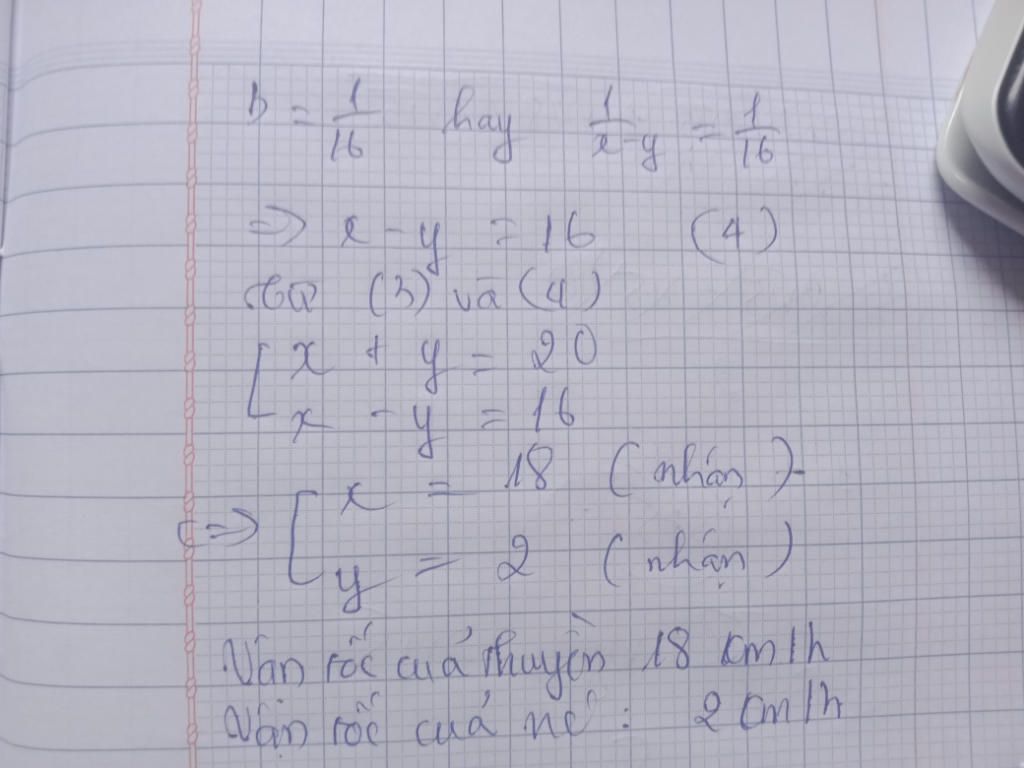 b = 1/16 hay 1/x-y = 1/16
=> x - y = 16 (4)
(3) và (4)
[ x + y = 20
x - y = 16
<=> [ x = 18 (nhận)
y = 2 (nhận)
Vận tốc của thuyền 18 km/h
Vận tốc của nc : 2 km/h